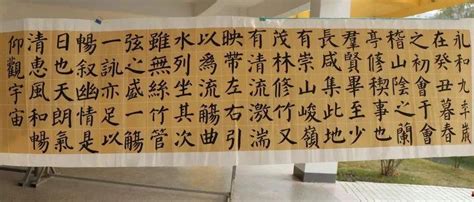 永和九年歲
在癸丑暮春
之初會于會
稽山陰之蘭
亭修禊事也
羣賢畢至少
長咸集此地
有崇山峻嶺
茂林修竹又
有清流激湍
映帶左右引
以為流觴曲
水列坐其次
雖無絲竹管
弦之盛一觴
一詠亦足以
暢叙幽情是
日也天朗氣
清惠風和暢
仰觀宇宙